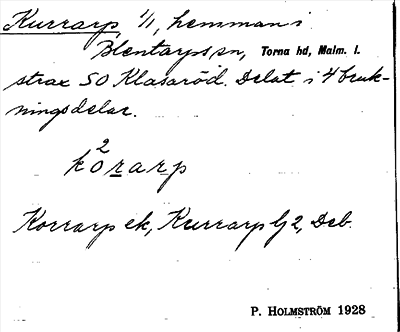 Kurrarp, 1/1, hemman i
Blentarps sn, Torna hd, Malm. l.
strax SO Klasaröd. Delat i 4 bruk-
ningsdelar.
2
korarp
Korrarp ek, Kurrarp Gj 2, Deb.
P. HOLMSTRÖM 1928